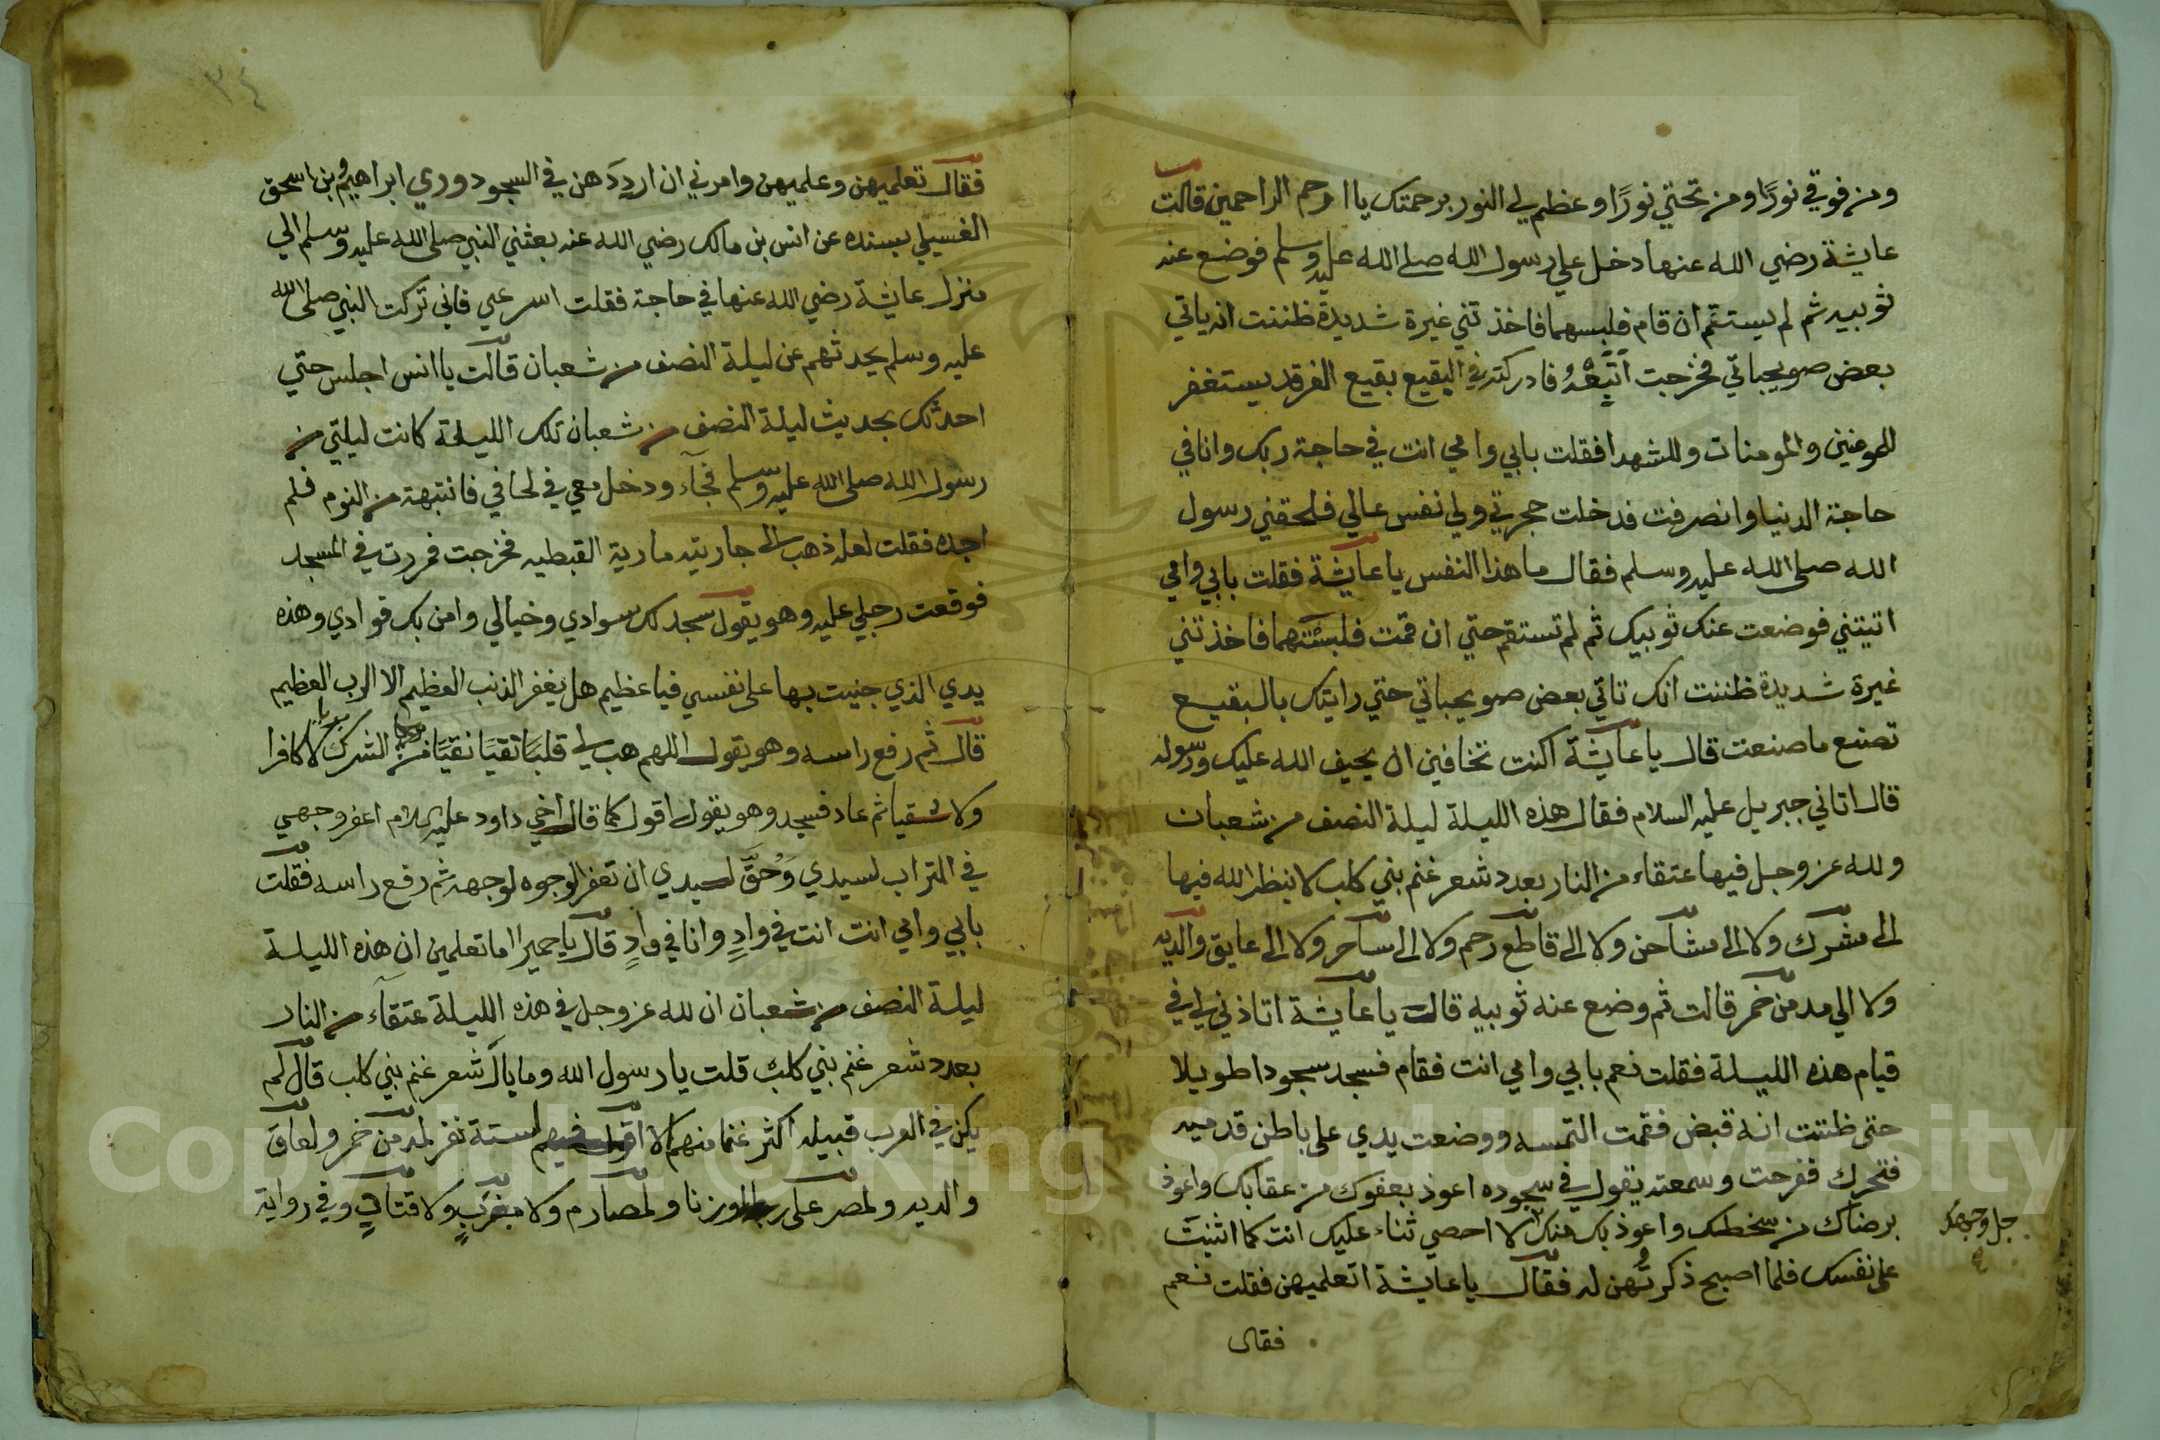 ومن فوقي نورًا ومن تحتي نورًا وعظم لي النور برحمتك يا ارحم الراحمين قالت
عايشة رضي الله عنها دخل علي رسول الله صلى الله عليه وسلم فوضع عنه
ثوبيه ثم لم يستتم ان قام فلبسهما فاخذتني غيرة شديدة ظننت انه ياتي
بعض صويحباتي فخرجت اتبعه فادركته في البقيع بقيع الغرقد يستغفر
للمومنين والمومنات وللشهدا فقلت بابي وامي انت في حاجة ربك وانا في
حاجة الدنيا وانصرفت فدخلت حجرتي ولي نفس عالي فلحقني رسول
الله صلى الله عليه وسلم فقال ما هذا النفس يا عايشة فقلت بابي وامي
اتيتني فوضعت عنك ثوبيك ثم لم تستقم حتي ان قمت فلبستهما فاخذتني
غيرة شديدة ظننت انك تاتي بعض صويحباتي حتي رايتك بالبقيع
تصنع ما صنعت قال يا عايشة اكنت تخافين ان يحيف الله عليك ورسوله
قال اتاني جبريل عليه السلام فقال هذه الليلة ليلة النصف من شعبان
ولله عز وجل فيها عتقاء من النار بعدد شعر غنم بني كلب لا ينظر الله فيها
الى مشرك ولا الى مشاحن ولا الى قاطع رحم ولا الى ساحر ولا الى عايق والديه
ولا الي مدمن خمر قالت ثم وضع عنه ثوبيه قال يا عايشة اتاذني لي في
قيام هذه الليلة فقلت نعم بابي وامي انت فقام فسجد سجودا طويلا
حتى ظننت انه قبض فقمت التمسه ووضعت يدي على باطن قدميه
فتحرك ففرحت وسمعته يقول في سجوده اعوذ بعفوك من عقابك واعوذ
برضاك من سخطك واعوذ بك منك لا احصي ثناء عليك انت كما اثنيت
جل وجهك
على نفسك فلما اصبح ذكرتهن له فقال يا عايشة اتعلميهن فقلت نعم
فقال
٣٤
فقال تعلميهن وعلميهن وامرني ان ارددهن في السجود وروي ابراهيم بن اسحق
الغسيلي بسنده عن انس بن مالك رضي الله عنه بعثني النبي صلى الله عليه وسلم الي
منزل عايشة رضي الله عنها في حاجة فقلت اسرعي فاني تركت النبي صلى الله
عليه وسلم يحدثهم عن ليلة النصف من شعبان قالت يا انس اجلس حتي
احدثك بحديث ليلة النصف من شعبان تلك الليلة كانت ليلتي من
رسول الله صلى الله عليه وسلم فجآء ودخل معي في لحافي فانتبهة من النوم فلم
اجده فقلت لعله ذهب الى جاريته مارية القبطيه فخرجت فمررت في المسجد
فوقعت رجلي عليه وهو يقول سجد لك سوادي وخيالي وامن بك فوادي وهذه
يدي الذي جنيت بها على نفسي فيا عظيم هل يغفر الذنب العظيم الا الرب العظيم
قال ثم رفع راسه وهو يقول اللهم هب لي قلبًا تقيَا نقيَا من الشرك لا كافرا
ولا شقيا ثم عاد فسجد وهو يقول اقول كما قال اخي داود عليه السلام اعفر وجهي
في التراب لسيدي وَحُقَّ لسيدي ان تعفر الوجوه لوجهه ثم رفع راسه فقلت
بابي وامي انت انت في وادٍ وانا في وادٍ قال يا حميرا اما تعلمين ان هذه الليلة
ليلة النصف من شعبان ان لله عز وجل في هذه الليلة عتقآء من النار
بعدد شعر غنم بني كلب قلت يا رسول الله وما بال شعر غنم بني كلب قال لم
يكن في العرب قبيله اكثر غنما منهم لا اقول فيهم لستة نفر لمدمن خمر ولعاق
والديه ولمصر على زنا ولمصارم ولا مضربٍ ولا قتاتٍ وفي رواية